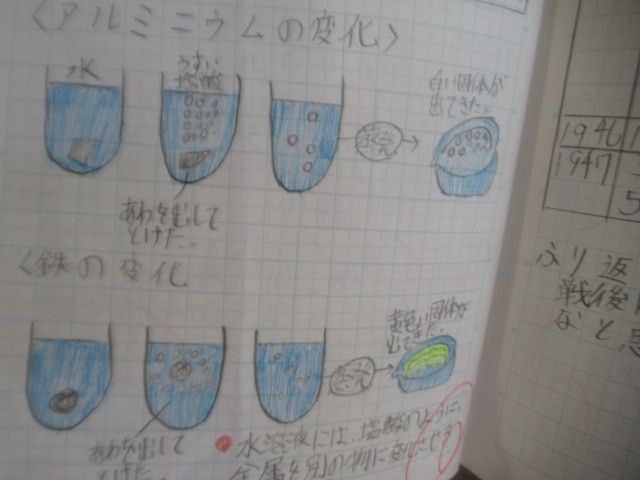 〈アルミニウムの変化〉
水
うすい
塩酸
白い固体が
出てきた。
蒸発
あわを出して
とけた。
〈鉄の変化
黄色い固体が
出てきた。
蒸発
あわを出して
とけた。
水溶液には、塩酸のように、
金属を別の物に変化させる
1946
1947
5
ふり返
戦後
など